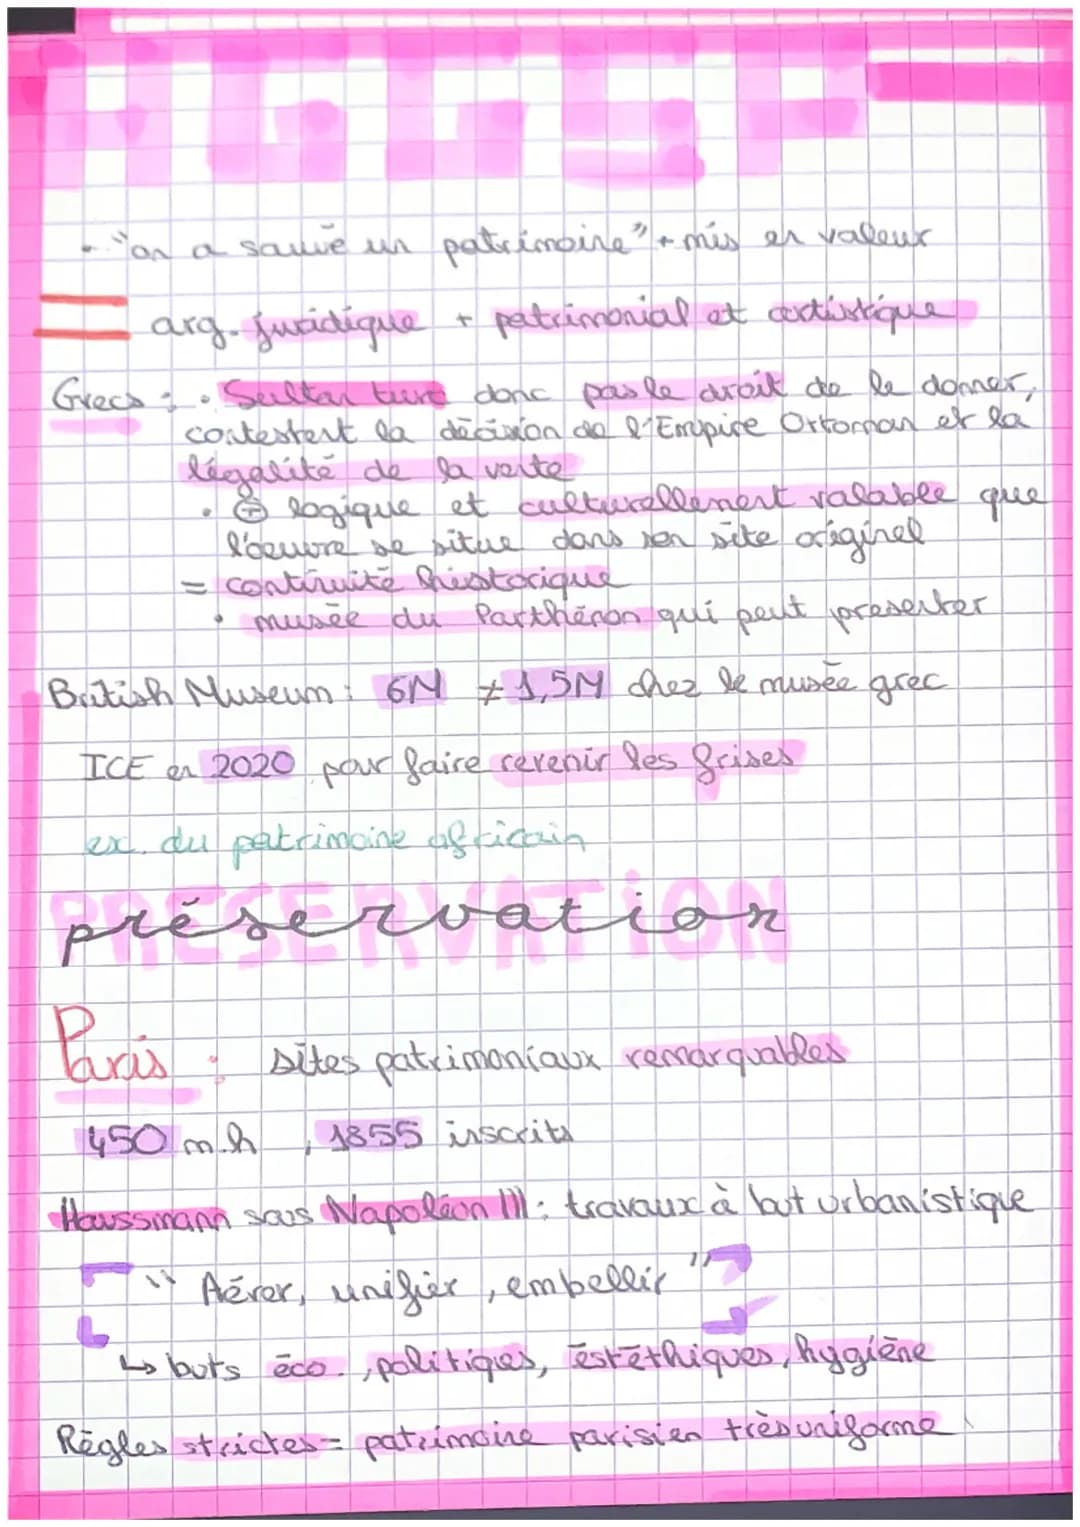 HGGSP
- "on a sauvé un patrimoine" + mis en valeur
= arg. juridique + patrimonial et artistique
Grecs : • Sultan turc donc pas le droit de le donner,
contestent la décision de l'Empire Ottoman et la
légalité de la vente
• ⊕ logique et culturellement valable que
l'oeuvre se situe dans son site originel
= continuité historique
• musée du Parthénon qui peut presenter
British Museum : 6M ≠ 1,5M chez le musée grec
ICE en 2020 pour faire revenir les frises
ex. du patrimoine africain
préservation
Paris : sites patrimoniaux remarquables
450 m.h , 1855 inscrits
Haussmann sous Napoléon III : travaux à but urbanistique
" Aérer, unifier, embellir "
↳ buts éco. , politiques, éstéthiques, hygiène
Règles strictes = patrimoine parisien très uniforme